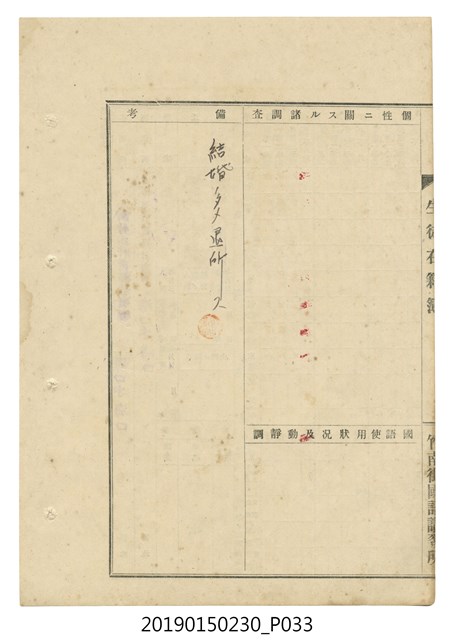 生徒在籍簿
竹南街國語講習所
個性ニ關スル諸調査
國語使用狀況及動靜調
備考
結婚ノタメ退所ス
20190150230_P033